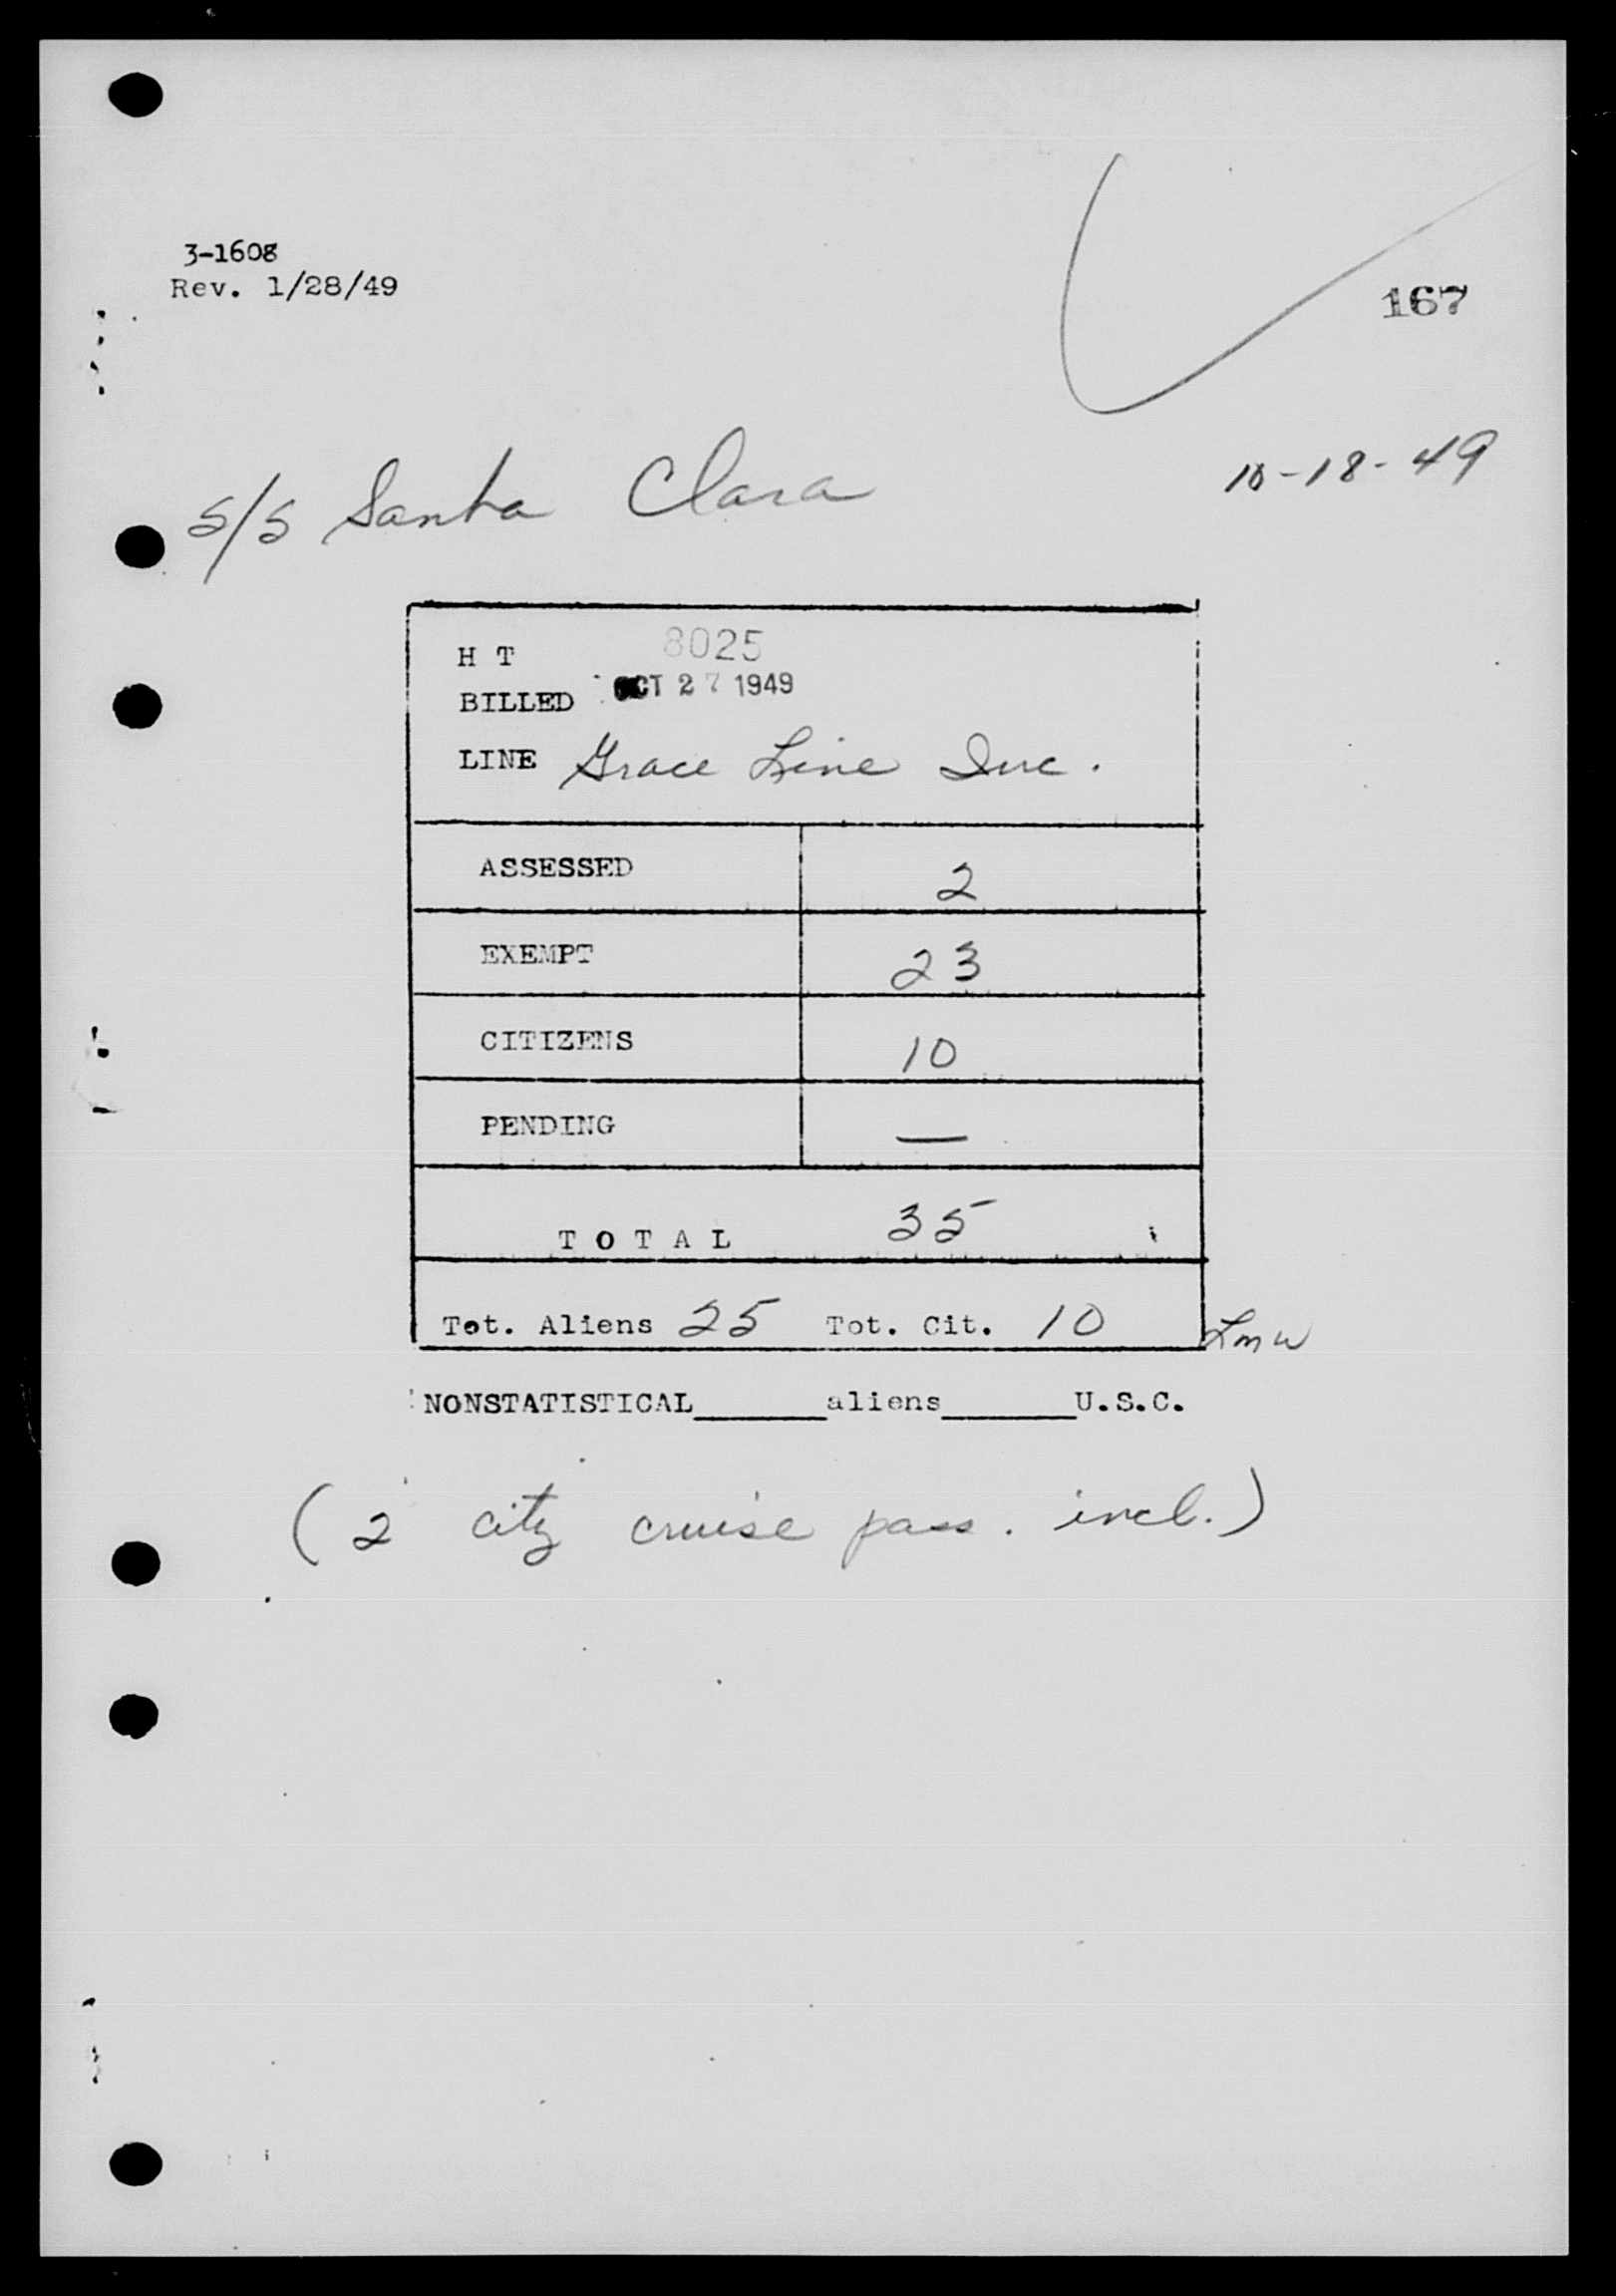 3-1608
Rev. 1/28/49
167
10-18-49
S/S Santa Clara
H T 8025
BILLED OCT 27 1949
LINE Grace Line Inc.
ASSESSED 2
EXEMPT 23
CITIZENS 10
PENDING —
TOTAL 35
Tot. Aliens 25 Tot. Cit. 10
Lmw
NONSTATISTICAL______aliens______U.S.C.
(2 citz cruise pass. incl.)